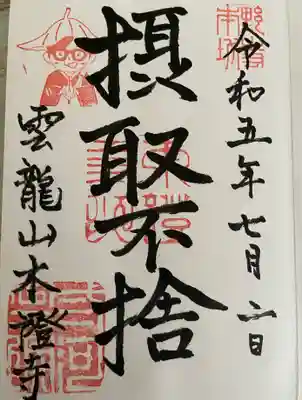 令和五年七月二日
摂取不捨
雲龍山本證寺
野寺
本坊